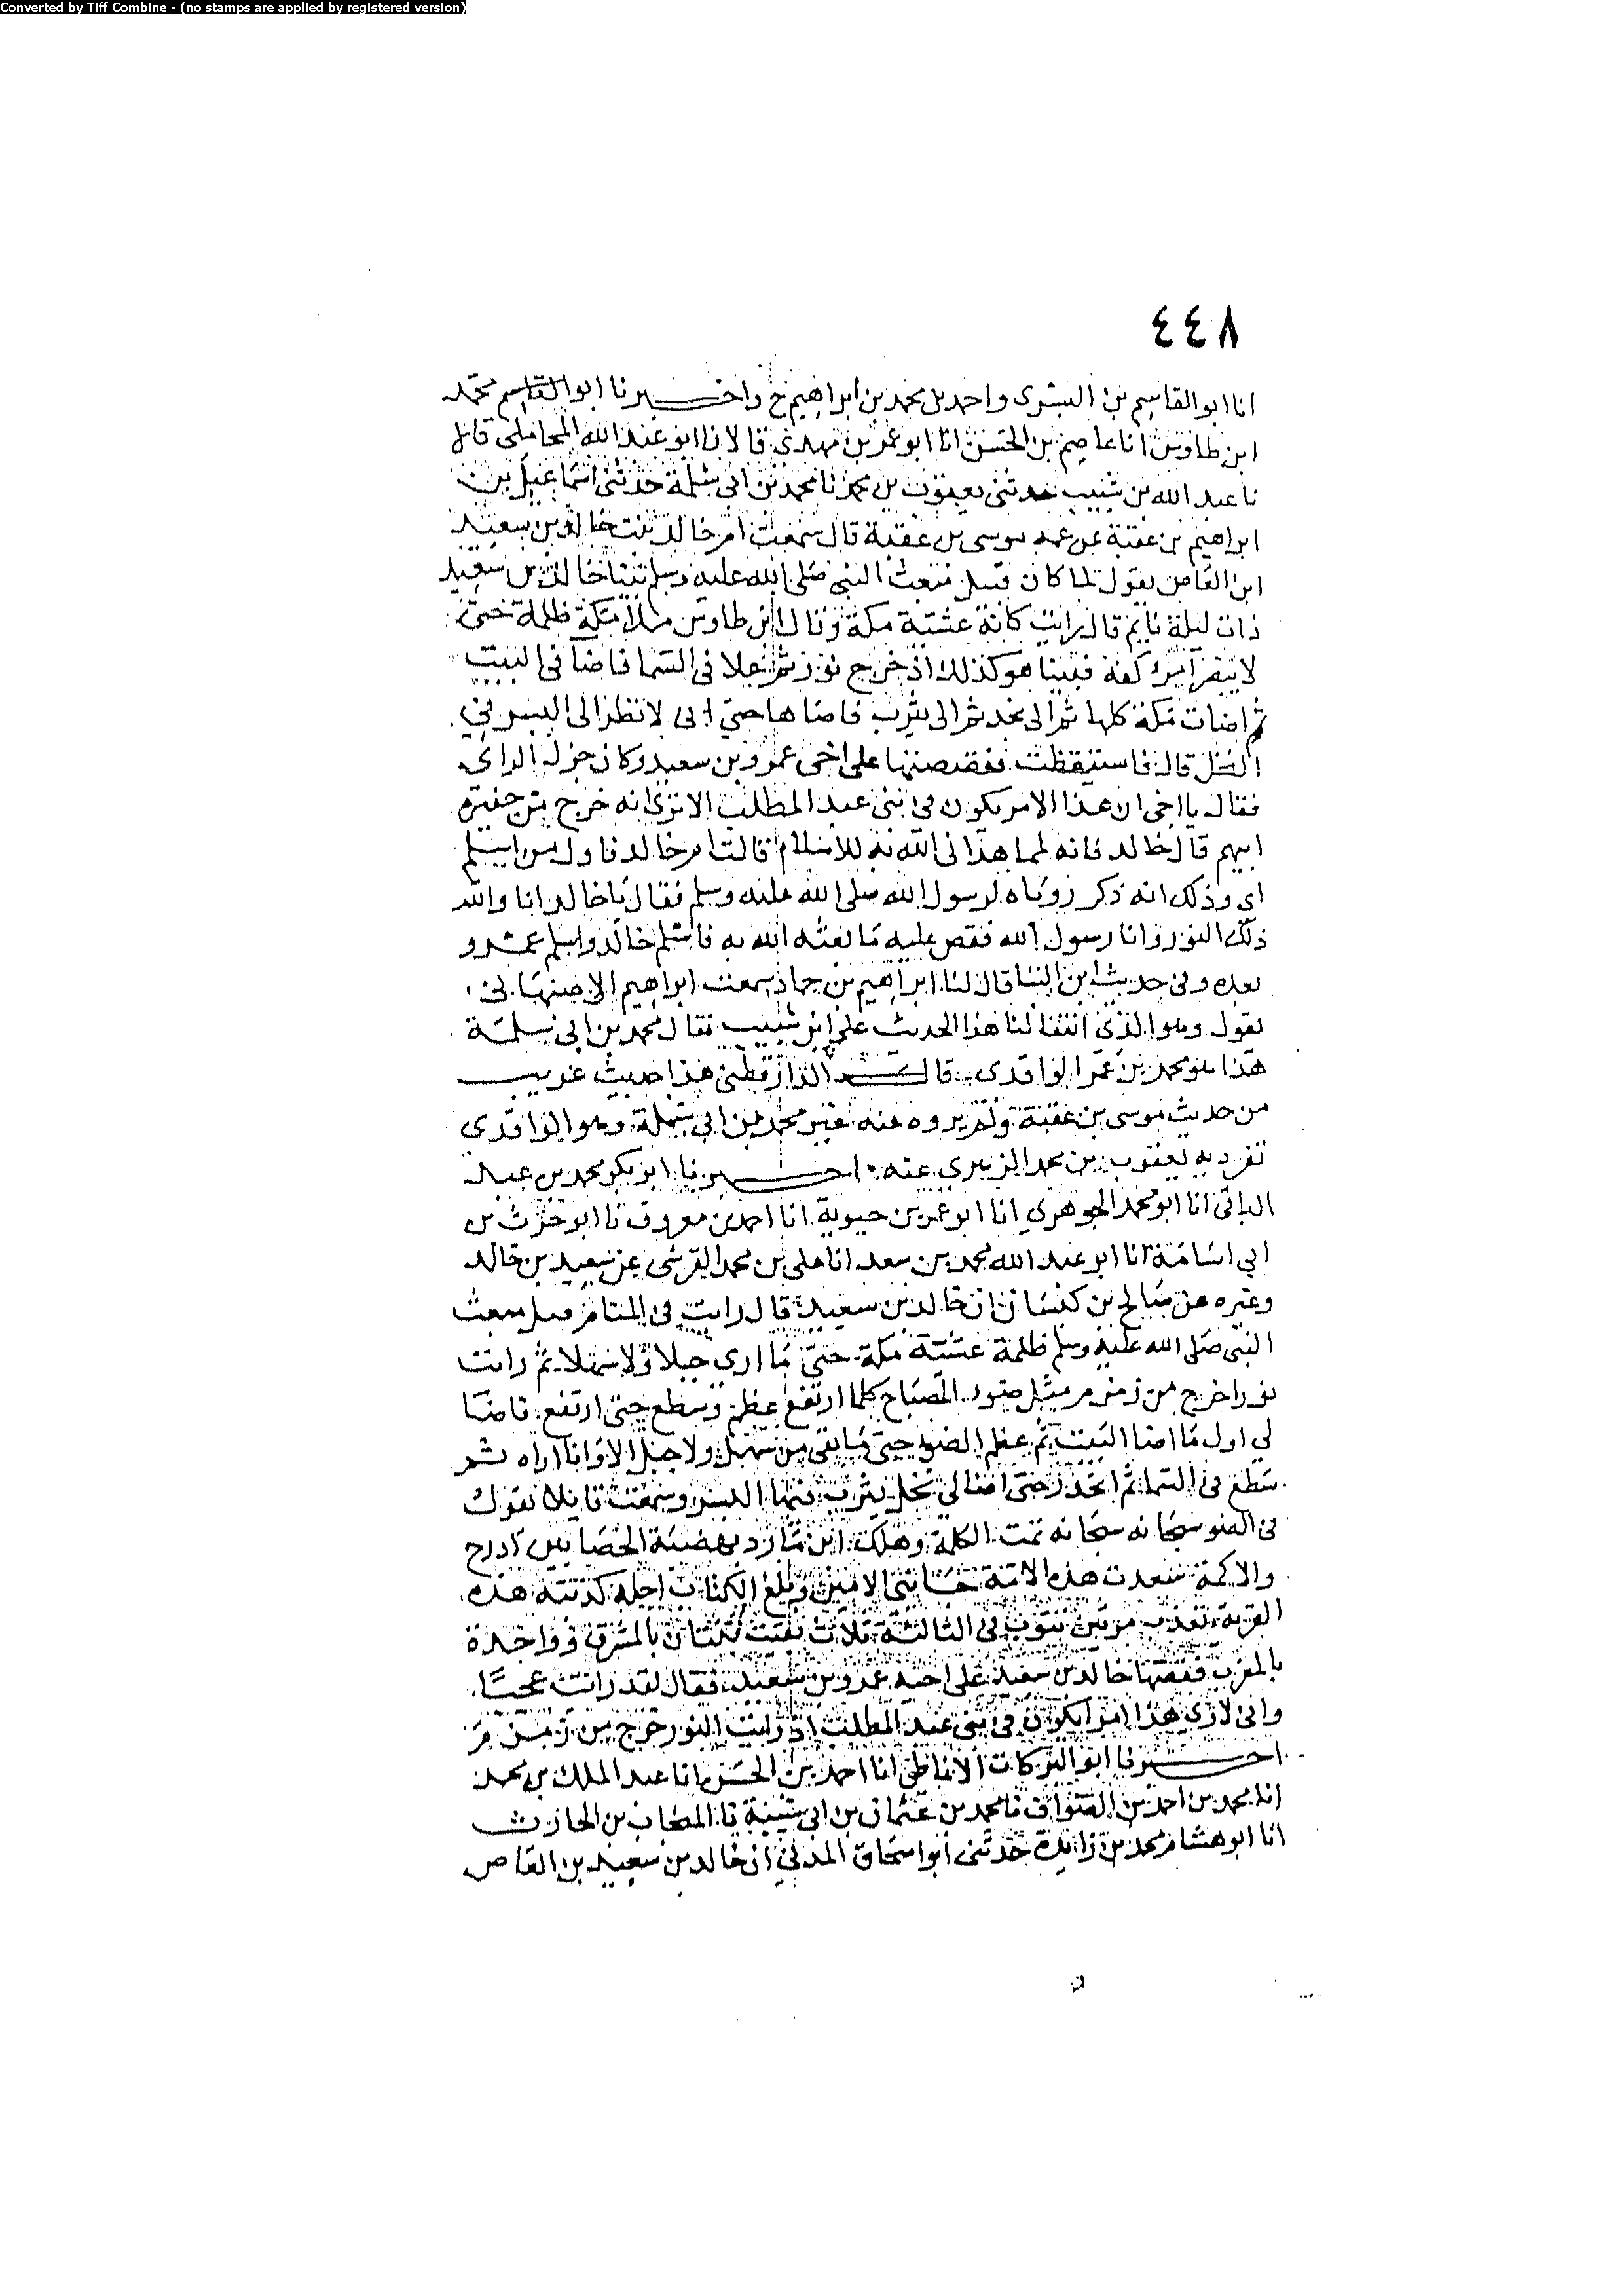 Converted by Tiff Combine - (no stamps are applied by registered version)
٤٤٨
انا ابو القاسم بن البسرى واحمد بن محمد بن ابراهيم ح واخبرنا ابو القاسم محمد
ابن طاوس انا عاصم بن الحسن انا ابو عمر بن مهدى قالا نا ابو عبد الله المحاملى قال
نا عبد الله بن شبيب حدثنى يعقوب بن محمد نا محمد بن ابى سلمة حدثنى اسماعيل بن
ابراهيم بن عقبة عن عمه موسى بن عقبة قال سمعت ام خالد بنت خالد بن سعيد
ابن العاص تقول لما كان قبيل مبعث النبى صلى الله عليه وسلم بينا خالد بن سعيد
ذات ليلة نايم قال رايت كانه غشيت مكة وقال ابن طاوس مكة ظلمة حتى
لا يبصر امرؤ كفه فبينا هو كذلك اذ خرج نور ثم علا فى السما فاضا فى البيت
ثم اضات مكة كلها ثم الى نجد ثم الى يثرب فاضاها حتى انى لانظر الى البسر فى
النخل قال فاستيقظت فقصصتها على اخى عمرو بن سعيد وكان جزل الراى
فقال يا اخى ان هذا الامر يكون فى بنى عبد المطلب الا ترى انه خرج من حفيرة
ابيهم قال خالد فانه لمما هدانى الله به للاسلام قالت ام خالد فاول من اسلم
ابى وذلك انه ذكر روياه لرسول الله صلى الله عليه وسلم فقال يا خالد انا والله
ذلك النور وانا رسول الله فقص عليه ما بعثه الله به فاسلم خالد واسلم عمرو
بعده وفى حديث ابن البنا قال لنا ابراهيم بن حماد سمعت ابراهيم الاصبهانى
يقول وهو الذى انتقا لنا هذا الحديث على ابن شبيب فقال محمد بن ابى سلمة
هذا هو محمد بن عمر الواقدى قال الدارقطنى هذا حديث غريب
من حديث موسى بن عقبة ولم يروه عنه غير محمد بن ابى سلمة وهو الواقدى
تفرد به يعقوب بن محمد الزهرى عنه اخبرنا ابو بكر محمد بن عبد
الباقى انا ابو محمد الجوهرى انا ابو عمر بن حيوية انا احمد بن معروف نا ابو حرث بن
ابى اسامة انا ابو عبد الله محمد بن سعد انا على بن محمد القرشى عن سعيد بن خالد
وغيره عن صالح بن كيسان ان خالد بن سعيد قال رايت فى المنام قبل مبعث
النبى صلى الله عليه وسلم ظلمة غشيت مكة حتى ما ارى جبلا ولا سهلا ثم رايت
نورا خرج من زمزم مثل ضوء المصباح كلما ارتفع عظم وسطع حتى ارتفع فاضا
لى اول ما اضا البيت ثم عظم الضو حتى ما بقى من سهل ولا جبل الا وانا اراه ثم
سطع فى السما ثم انحدر حتى اضا لى نخل يثرب فيها البسر وسمعت قايلا يقول
فى الضو سبحانه سبحانه تمت الكلمة وهلك ابن مارد بهضبة الحصا بين ادرح
والاكمة سعدت هذه الامة جا نبى الاميين وبلغ الكتاب اجله كذبته هذه
القرية تعذب مرتين تتوب فى الثالثة ثلاث بقيت ثنتان بالمشرق وواحدة
بالمغرب فقصها خالد بن سعيد على اخيه عمرو بن سعيد فقال لقد رايت عجبا
وانى لارى هذا امرا يكون فى بنى عبد المطلب اذ رايت النور خرج من زمزم
اخبرنا ابو البركات الانماطى انا احمد بن الحسن انا عبد الملك بن محمد
انا محمد بن احمد بن الصواف نا محمد بن عثمان بن ابى شيبة نا المنجاب بن الحارث
انا ابو هشام محمد بن زايدة حدثنى ابو اسحاق المدنى ان خالد بن سعيد بن العاص